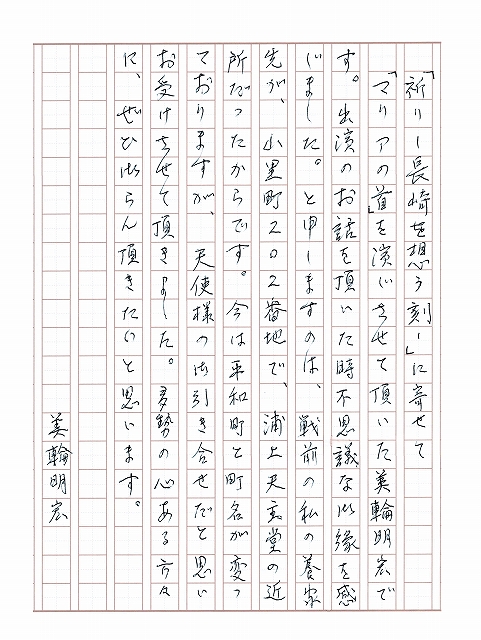 「祈り－長崎を想う刻－」に寄せて
「マリアの首」を演じさせて頂いた美輪明宏で
す。出演のお話を頂いた時不思議な御縁を感
じました。と申しますのは、戦前の私の養家
先が、山里町202番地で、浦上天主堂の近
所だったからです。今は平和町と町名が変っ
ておりますが、天使様の御引き合せだと思い
お受けさせて頂きました。多勢の心ある方々
に、ぜひ御らん頂きたいと思います。
美輪明宏